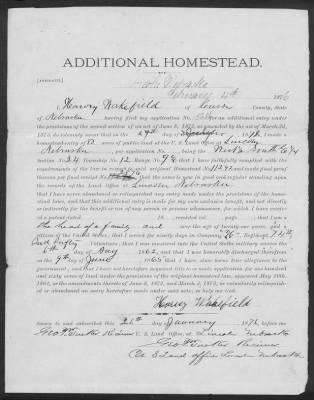 ADDITIONAL HOMESTEAD.
[AFFIDAVIT.]
February 4th 1876
I, Harvey Wakefield of County, State
of Nebraska having filed my application No. for an additional entry under
the provisions of the second section of an act of June 8, 1872, as amended by the act of March 3d,
1873, do solemnly swear that on the day of 187 , I made a
homestead entry of acres of public land at the U. S. Land Office at Lincoln
Nebraska , per application Entry No. , being the
Section 24, Township No. 12, Range No. 9 E that I have faithfully complied with the
requirements of the law in regard to said original Homestead No. and made final proof
thereon per final receipt No. that the same is good and in regular standing upon
the records of the Land Office at Lincoln Nebraska
that I have never abandoned or relinquished any entry made under the provisions of the home-
stead law, and that this additional entry is made for my own exclusive benefit, and not directly
or indirectly for the benefit or use of any person or persons whomsoever, for which I have receiv-
ed a patent dated 18 , recorded vol. , page ; that I am
the head of a family and over the age of twenty-one years, and
citizen of the United States, that I served ninety days in Company , Regiment
Volunteers; that I was mustered into the United States military service the
6th day of May 1862, and that I was honorably discharged therefrom on the
9th day of June 1865 that I have since borne true allegiance to the
government; and that I have not heretofore acquired title to or made application for one hundred
and sixty acres of land under the provisions of the original homestead law, approved May 20th,
1862, or the amendments thereto of June 8, 1872, and March 3, 1873, or voluntarily relinquish-
ed or abandoned an entry heretofore made under said acts, so help me God.
Harvey Wakefield
Sworn to and subscribed this 26th day of January 1876, before me
Geo P. Tucker U. S. Land Office, at Lincoln Nebraska
Geo P. Tucker
U S Land office Lincoln Nebraska